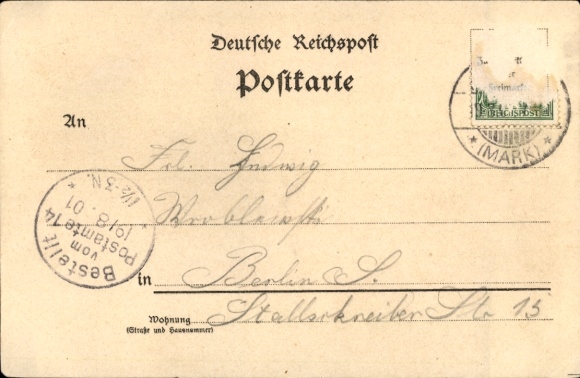 Deutsche Reichspost
Postkarte
REICHSPOST
(MARK)
An
Frl. Hedwig
Wroblewski
Bestellt
vom
Postamte 14
19/8. 01
1½-3N.
in Berlin S.
Wohnung
(Straße und Hausnummer)
Stallschreiber Str 15